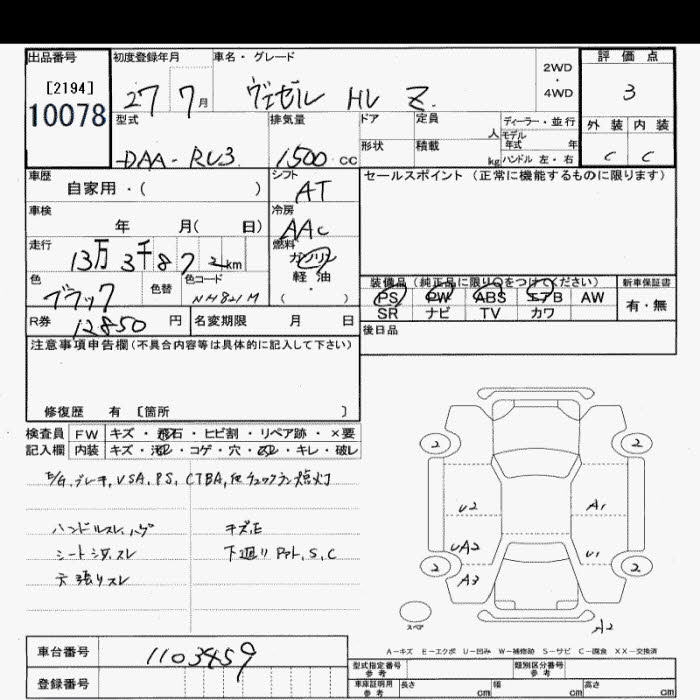 出品番号 初度登録年月 車名・グレード 2WD・4WD 評価点
[2194] 10078 27 7月 ヴェゼル HV Z. 3
型式 排気量 ドア 定員 人 ディーラー・並行 外装 内装
DAA-RU3 1500 cc 形状 積載 kg モデル年式 年 ハンドル 左・右 C C
車歴 自家用・( ) シフト AT セールスポイント (正常に機能するものに限ります)
車検 年 月( 日) 冷房 AAC
走行 13万3千872km 燃料 ガソリン・軽油・( )
色 ブラック 色替 色コード NH821M
装備品 (純正品に限り○をつけてください) 新車保証書
PS PW ABS エアB AW 有・無
SR ナビ TV カワ
R券 12850円 名変期限 月 日 後日品
注意事項申告欄(不具合内容等は具体的に記入して下さい)
修復歴 有 〔箇所 〕
検査員 FW キズ・飛石・ヒビ割・リペア跡・×要
記入欄 内装 キズ・汚れ・コゲ・穴・スレ・キレ・破レ
E/G,ブレーキ,VSA,PS,CTBA,他チェックランプ点灯
ハンドルスレ,ハゲ キズ,E
シートシワ,スレ 下廻り S,C
天張りスレ
2 2
U2 A1
UA2 U1
2 2
A3
スペア A2
A-キズ E-エクボ U-凹み W-補修跡 S-サビ C-腐食 XX-交換済
車台番号 1103459 型式指定番号 参考 類別区分番号 参考
登録番号 車庫証明用 参考 長さ cm 幅 cm 高さ cm